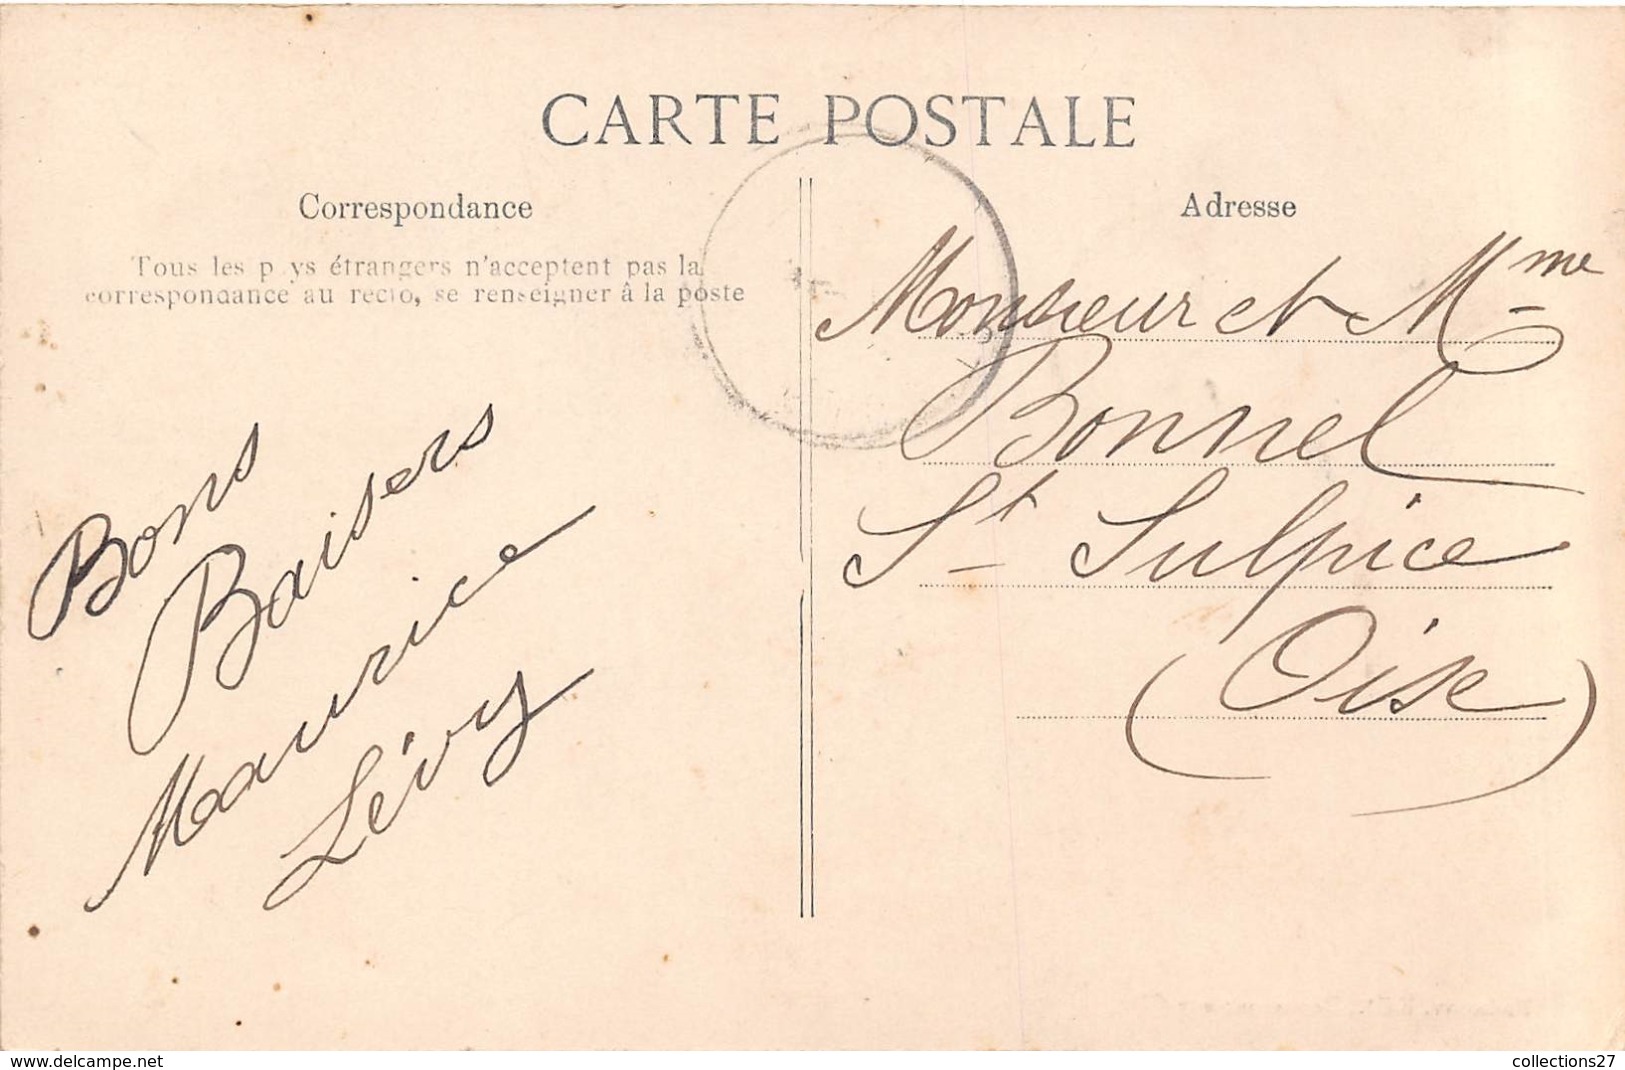 CARTE POSTALE
Correspondance
Tous les pays étrangers n'acceptent pas la
correspondance au recto, se renseigner à la poste
Bons
Baisers
Maurice
Lévy
Adresse
Monsieur et Mme
Bonnel
St Sulpice
(Oise)
www.delcampe.net
collections27